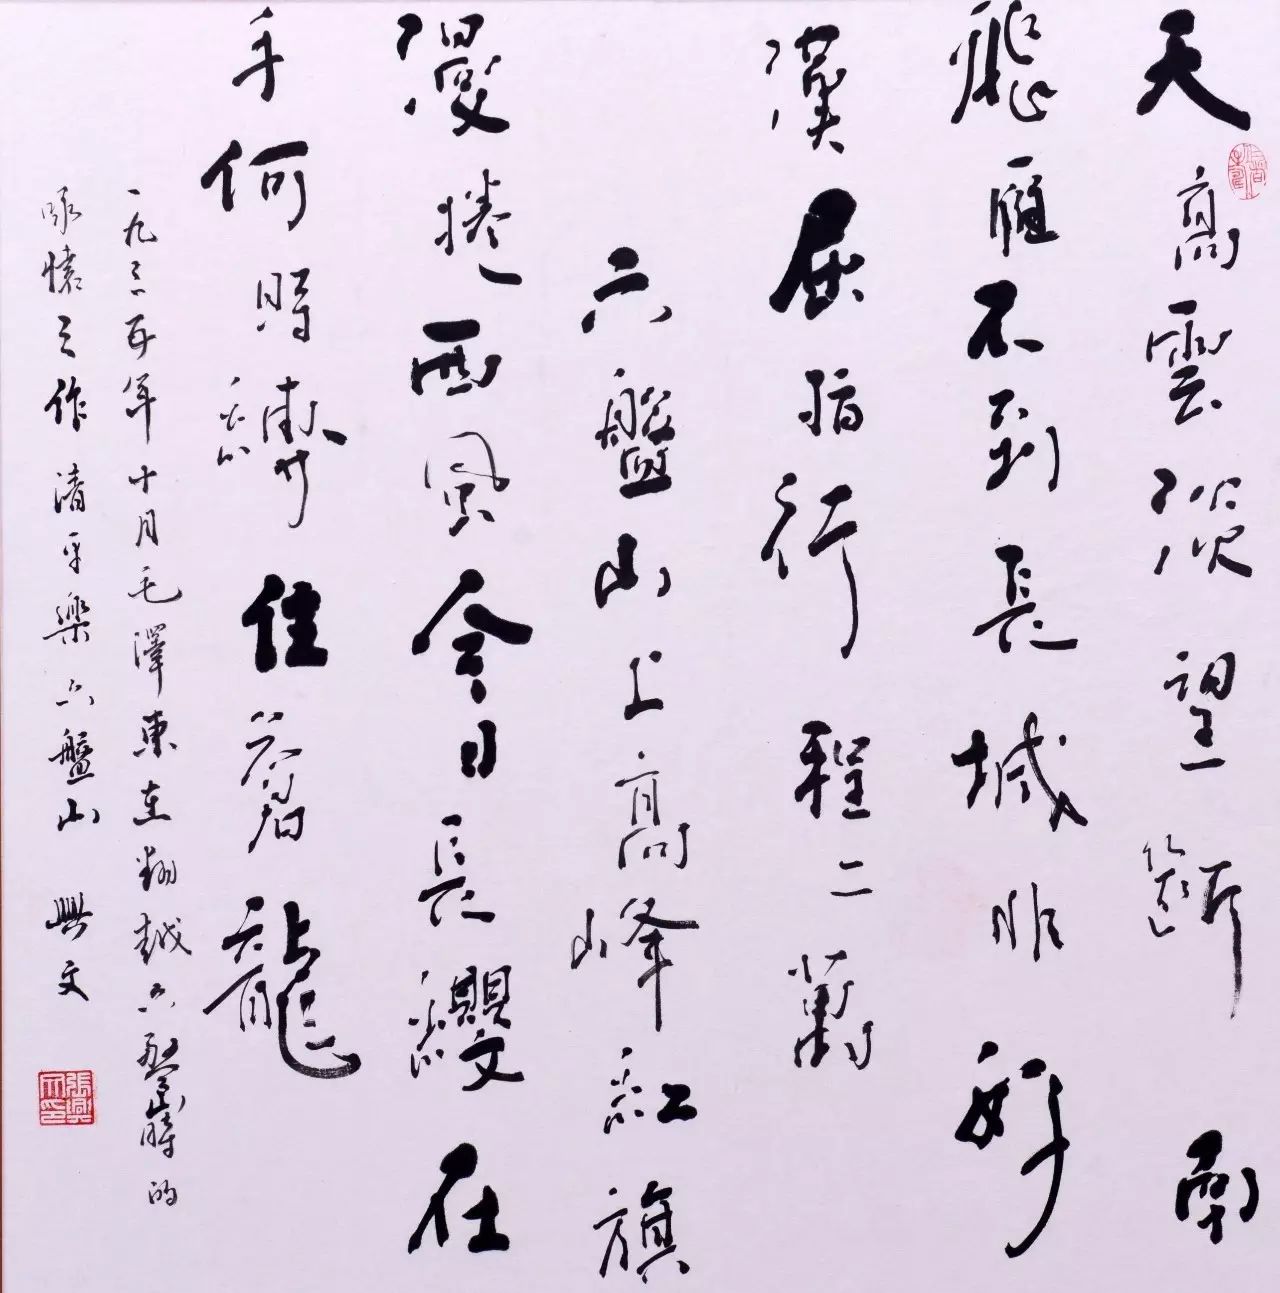 天高雲淡望斷南
飛雁不到長城非好
漢屈指行程二萬
六盤山上高峰紅旗
漫捲西風今日長纓在
手何時縛住蒼龍
一九三五年十月毛澤東在翻越六盤山時的
咏懷之作清平樂六盤山 興文
張興文印